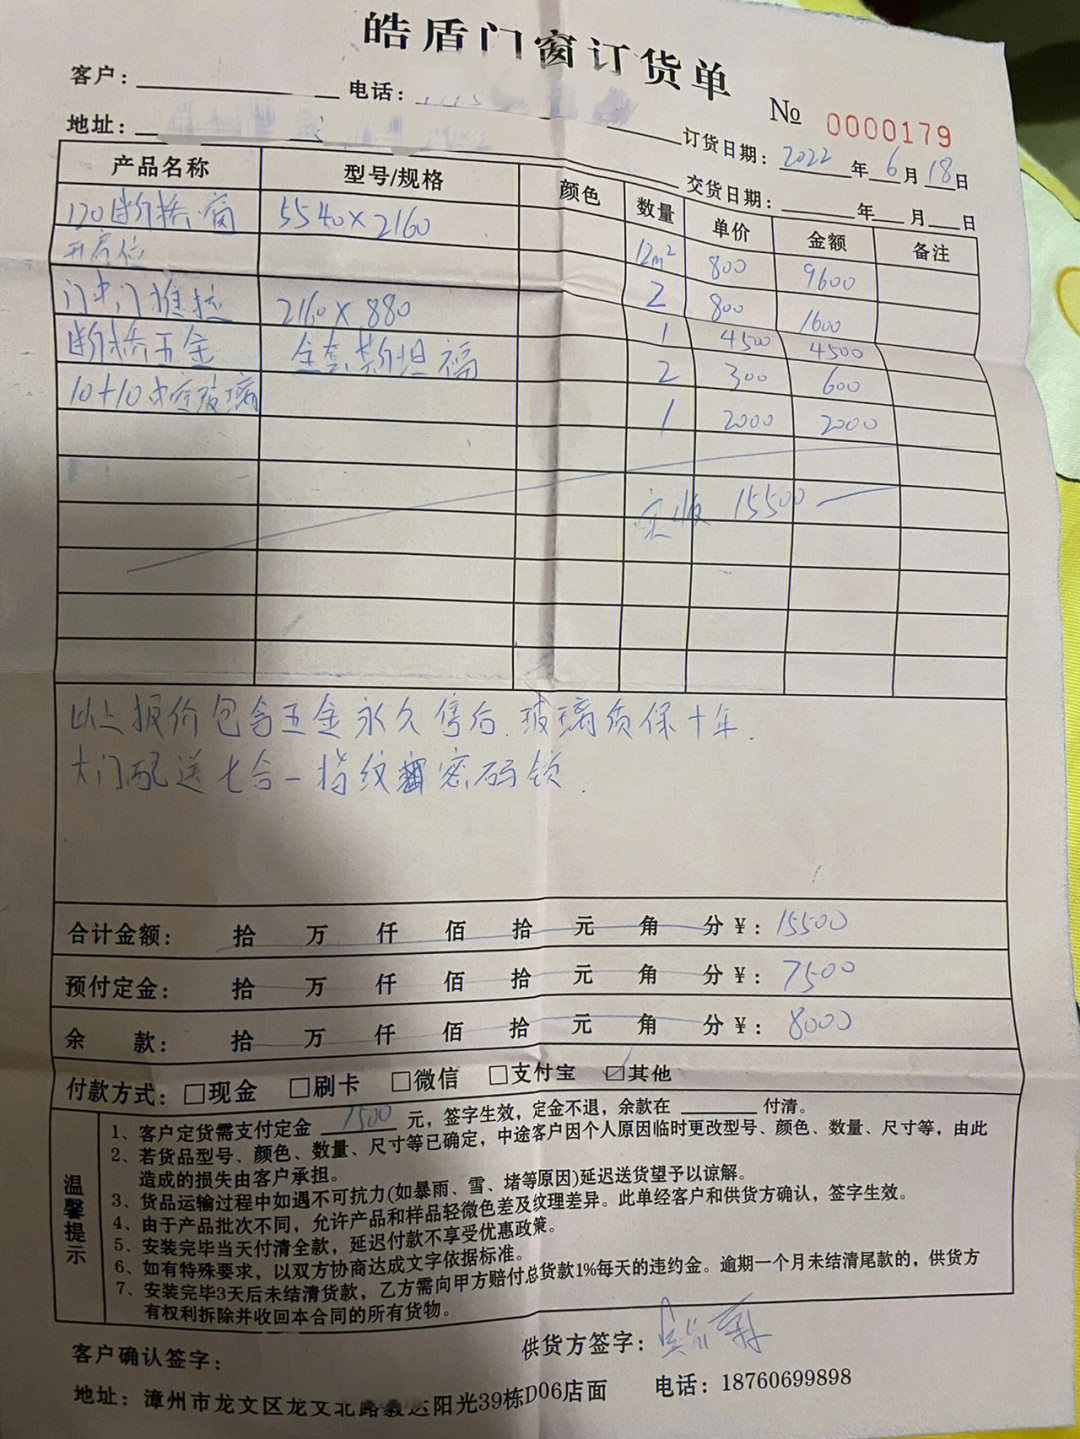 皓盾门窗订货单
客户： 电话：
№ 0000179
地址： 订货日期：2022年6月18日
交货日期： 年 月 日
产品名称 型号/规格 颜色 数量 单价 金额 备注
120断桥窗 5540×2160 12m² 800 9600
开启位 2 800 1600
门中门推拉 2160×880 1 4500 4500
断桥五金 全套斯坦福 2 300 600
10+10中空玻璃 1 2000 2000
实收 15500
以上报价包含五金永久售后.玻璃质保十年.
大门配送七合一指纹密码锁.
合计金额： 拾 万 仟 佰 拾 元 角 分 ¥：15500
预付定金： 拾 万 仟 佰 拾 元 角 分 ¥：7500
余 款： 拾 万 仟 佰 拾 元 角 分 ¥：8000
付款方式：□现金 □刷卡 □微信 □支付宝 ☑其他
温馨提示
1、客户定货需支付定金 7500 元，签字生效，定金不退，余款在 付清。
2、若货品型号、颜色、数量、尺寸等已确定，中途客户因个人原因临时更改型号、颜色、数量、尺寸等，由此
造成的损失由客户承担。
3、货品运输过程中如遇不可抗力(如暴雨、雪、堵等原因)延迟送货望予以谅解。
4、由于产品批次不同，允许产品和样品轻微色差及纹理差异。此单经客户和供货方确认，签字生效。
5、安装完毕当天付清全款，延迟付款不享受优惠政策。
6、如有特殊要求，以双方协商达成文字依据标准。
7、安装完毕3天后未结清货款，乙方需向甲方赔付总货款1%每天的违约金。逾期一个月未结清尾款的，供货方
有权利拆除并收回本合同的所有货物。
客户确认签字： 供货方签字：
地址：漳州市龙文区龙文北路 达阳光39栋D06店面 电话：18760699898